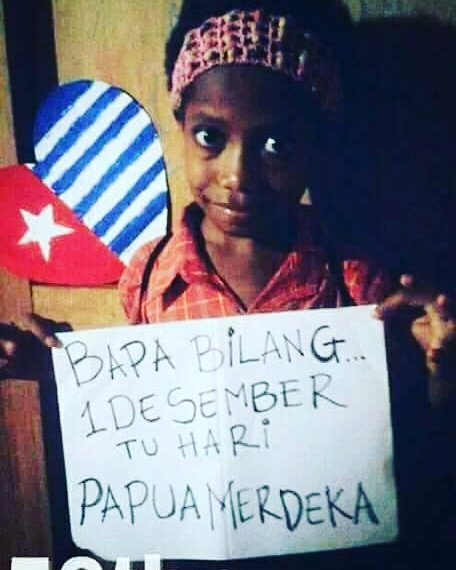 BAPA BiLANG...
1 DESEMBER
TU HARi
PAPUA MERDEKA